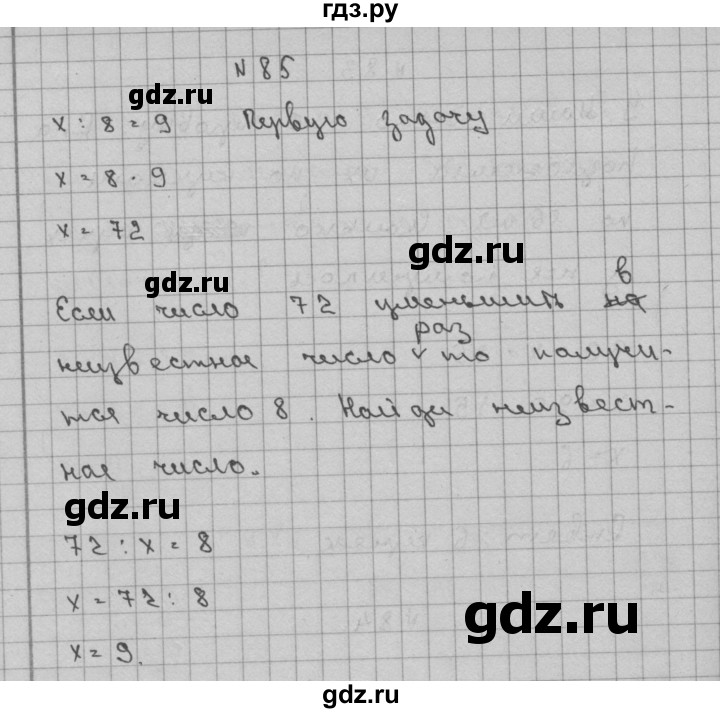 гдз.ру
N 85
gdz.ru
x : 8 = 9 Первую задачу
x = 8 · 9
x = 72
gdz.ru
gdz.ru
в
Если число 72 уменьшить на
раз
неизвестное число ˅ то получи-
тся число 8. Найди неизвест-
ное число.
gdz.ru
72 : x = 8
x = 72 : 8
gdz.ru
x = 9.
gdz.ru